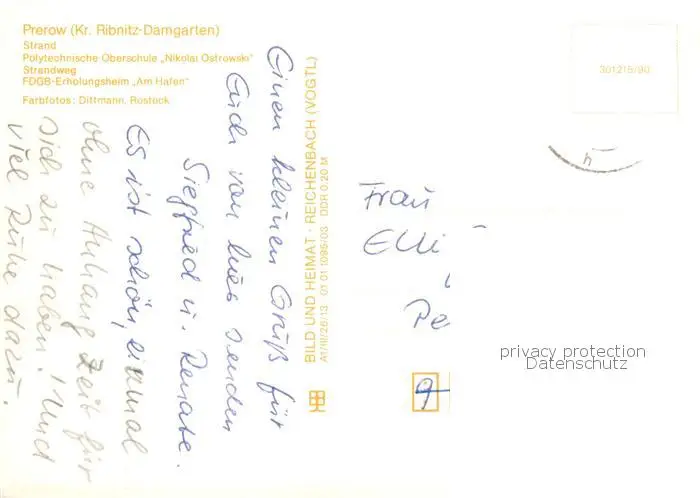 Prerow (Kr. Ribnitz-Damgarten)
Strand
Polytechnische Oberschule „Nikolai Ostrowski"
Strandweg
FDGB-Erholungsheim „Am Hafen"
Farbfotos: Dittmann, Rostock
Einen kleinen Gruß für
Euch von hier senden
Siegfried u. Renate.
Es ist schön, einmal
ohne Anhang Zeit für
sich zu haben! Und
viel Ruhe dazu.
BILD UND HEIMAT · REICHENBACH (VOGTL)
A1/III/26/13 01 01 1095/03 DDR 0,20 M
301215/90
Frau
Elli
Pe
9
privacy protection
Datenschutz